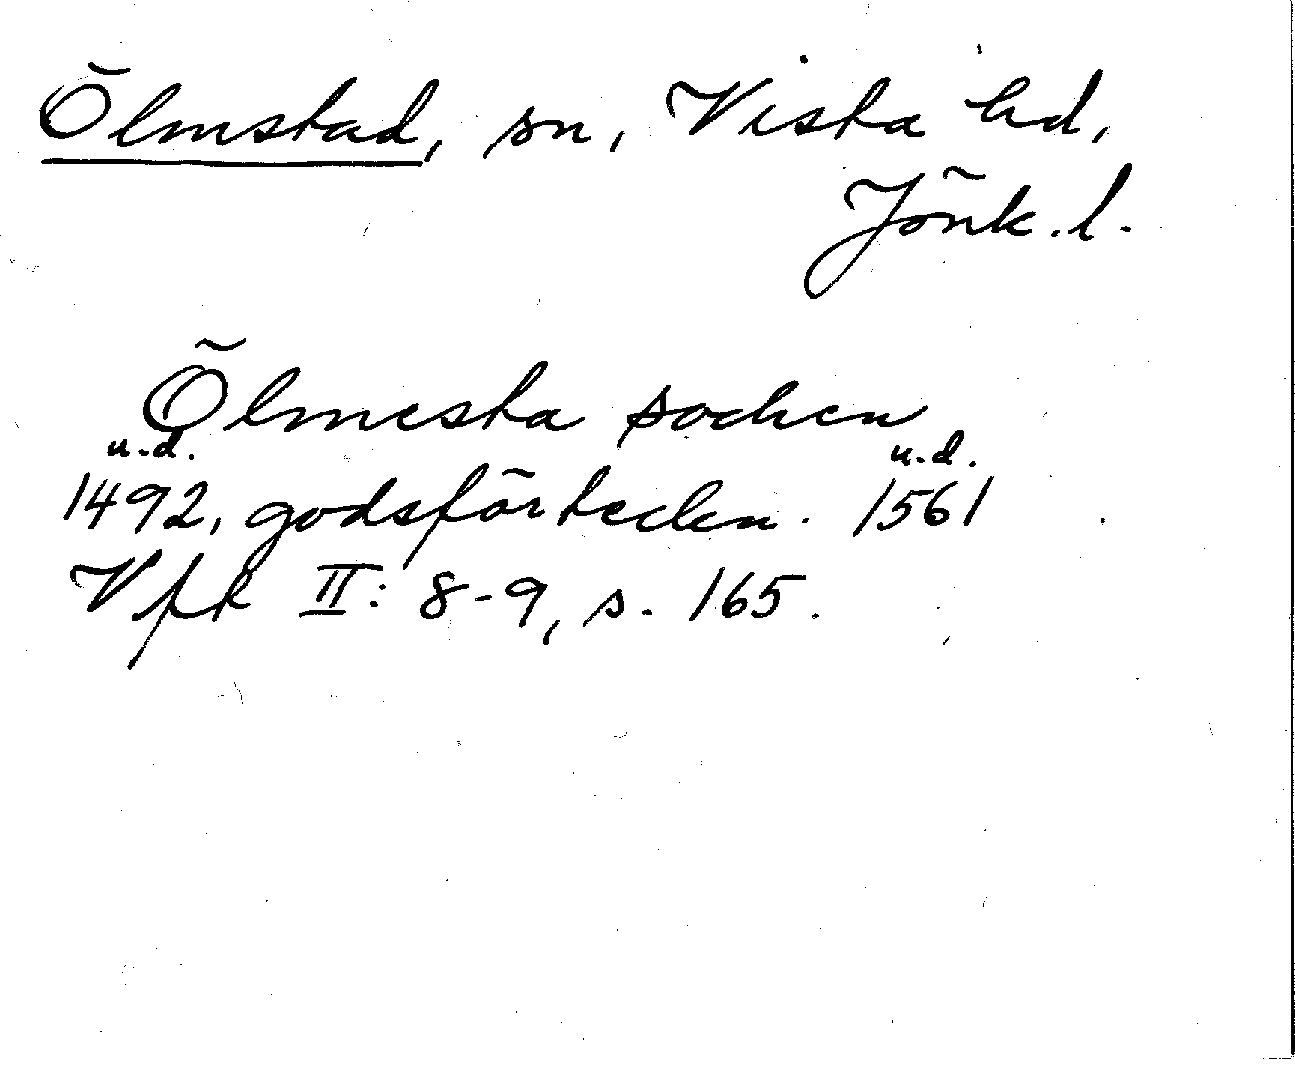 Ölmstad, sn, Vista hd,
Jönk. l.
Ölmesta sochen
u.d. u.d.
1492, godsförteckn. 1561
Vfk II: 8-9, s. 165.